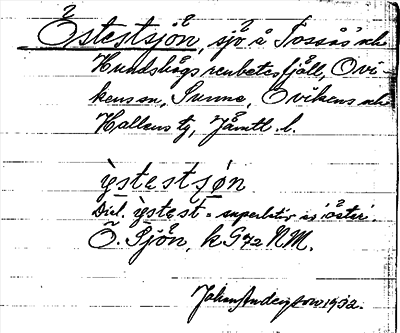 Östestsjön, sjö å Tossås' och
Hundshögs renbetesfjäll, Ovi-
kens sn, Sunne, Ovikens och
Hallens tg, Jämtl. l.
ỳstestsjøn
Dial. ỳstest = superlativ av 'öster'.
Ö. Sjön, k G72 NM.
1932.